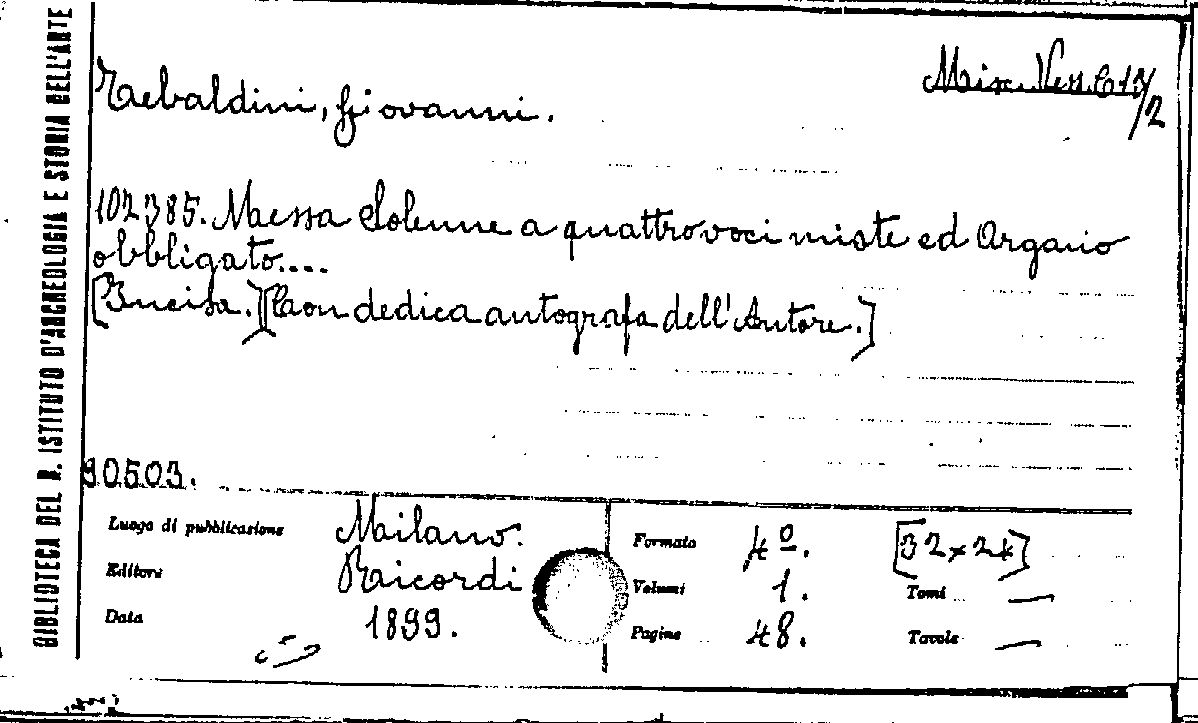 BIBLIOTECA DEL R. ISTITUTO D'ARCHEOLOGIA E STORIA DELL'ARTE
Misc. Vess. C 13/2
Tebaldini, Giovanni.
102385. Messa Solenne a quattro voci miste ed Organo
obbligato....
[Incisa.][Con dedica autografa dell'Autore.]
90503.
Luogo di pubblicazione Milano.
Editori Ricordi
Data 1899.
Formato 4º. [32×24]
Volumi 1. Tomi —
Pagine 48. Tavole —